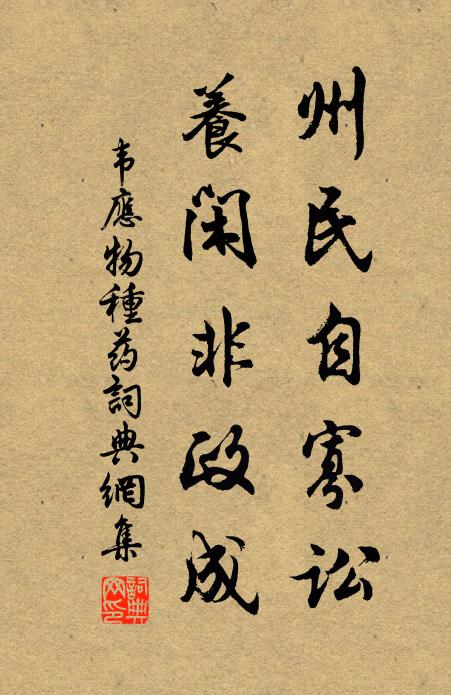 州民自寡讼
養閑非政成
韦應物種药詞典網集
詞典网印